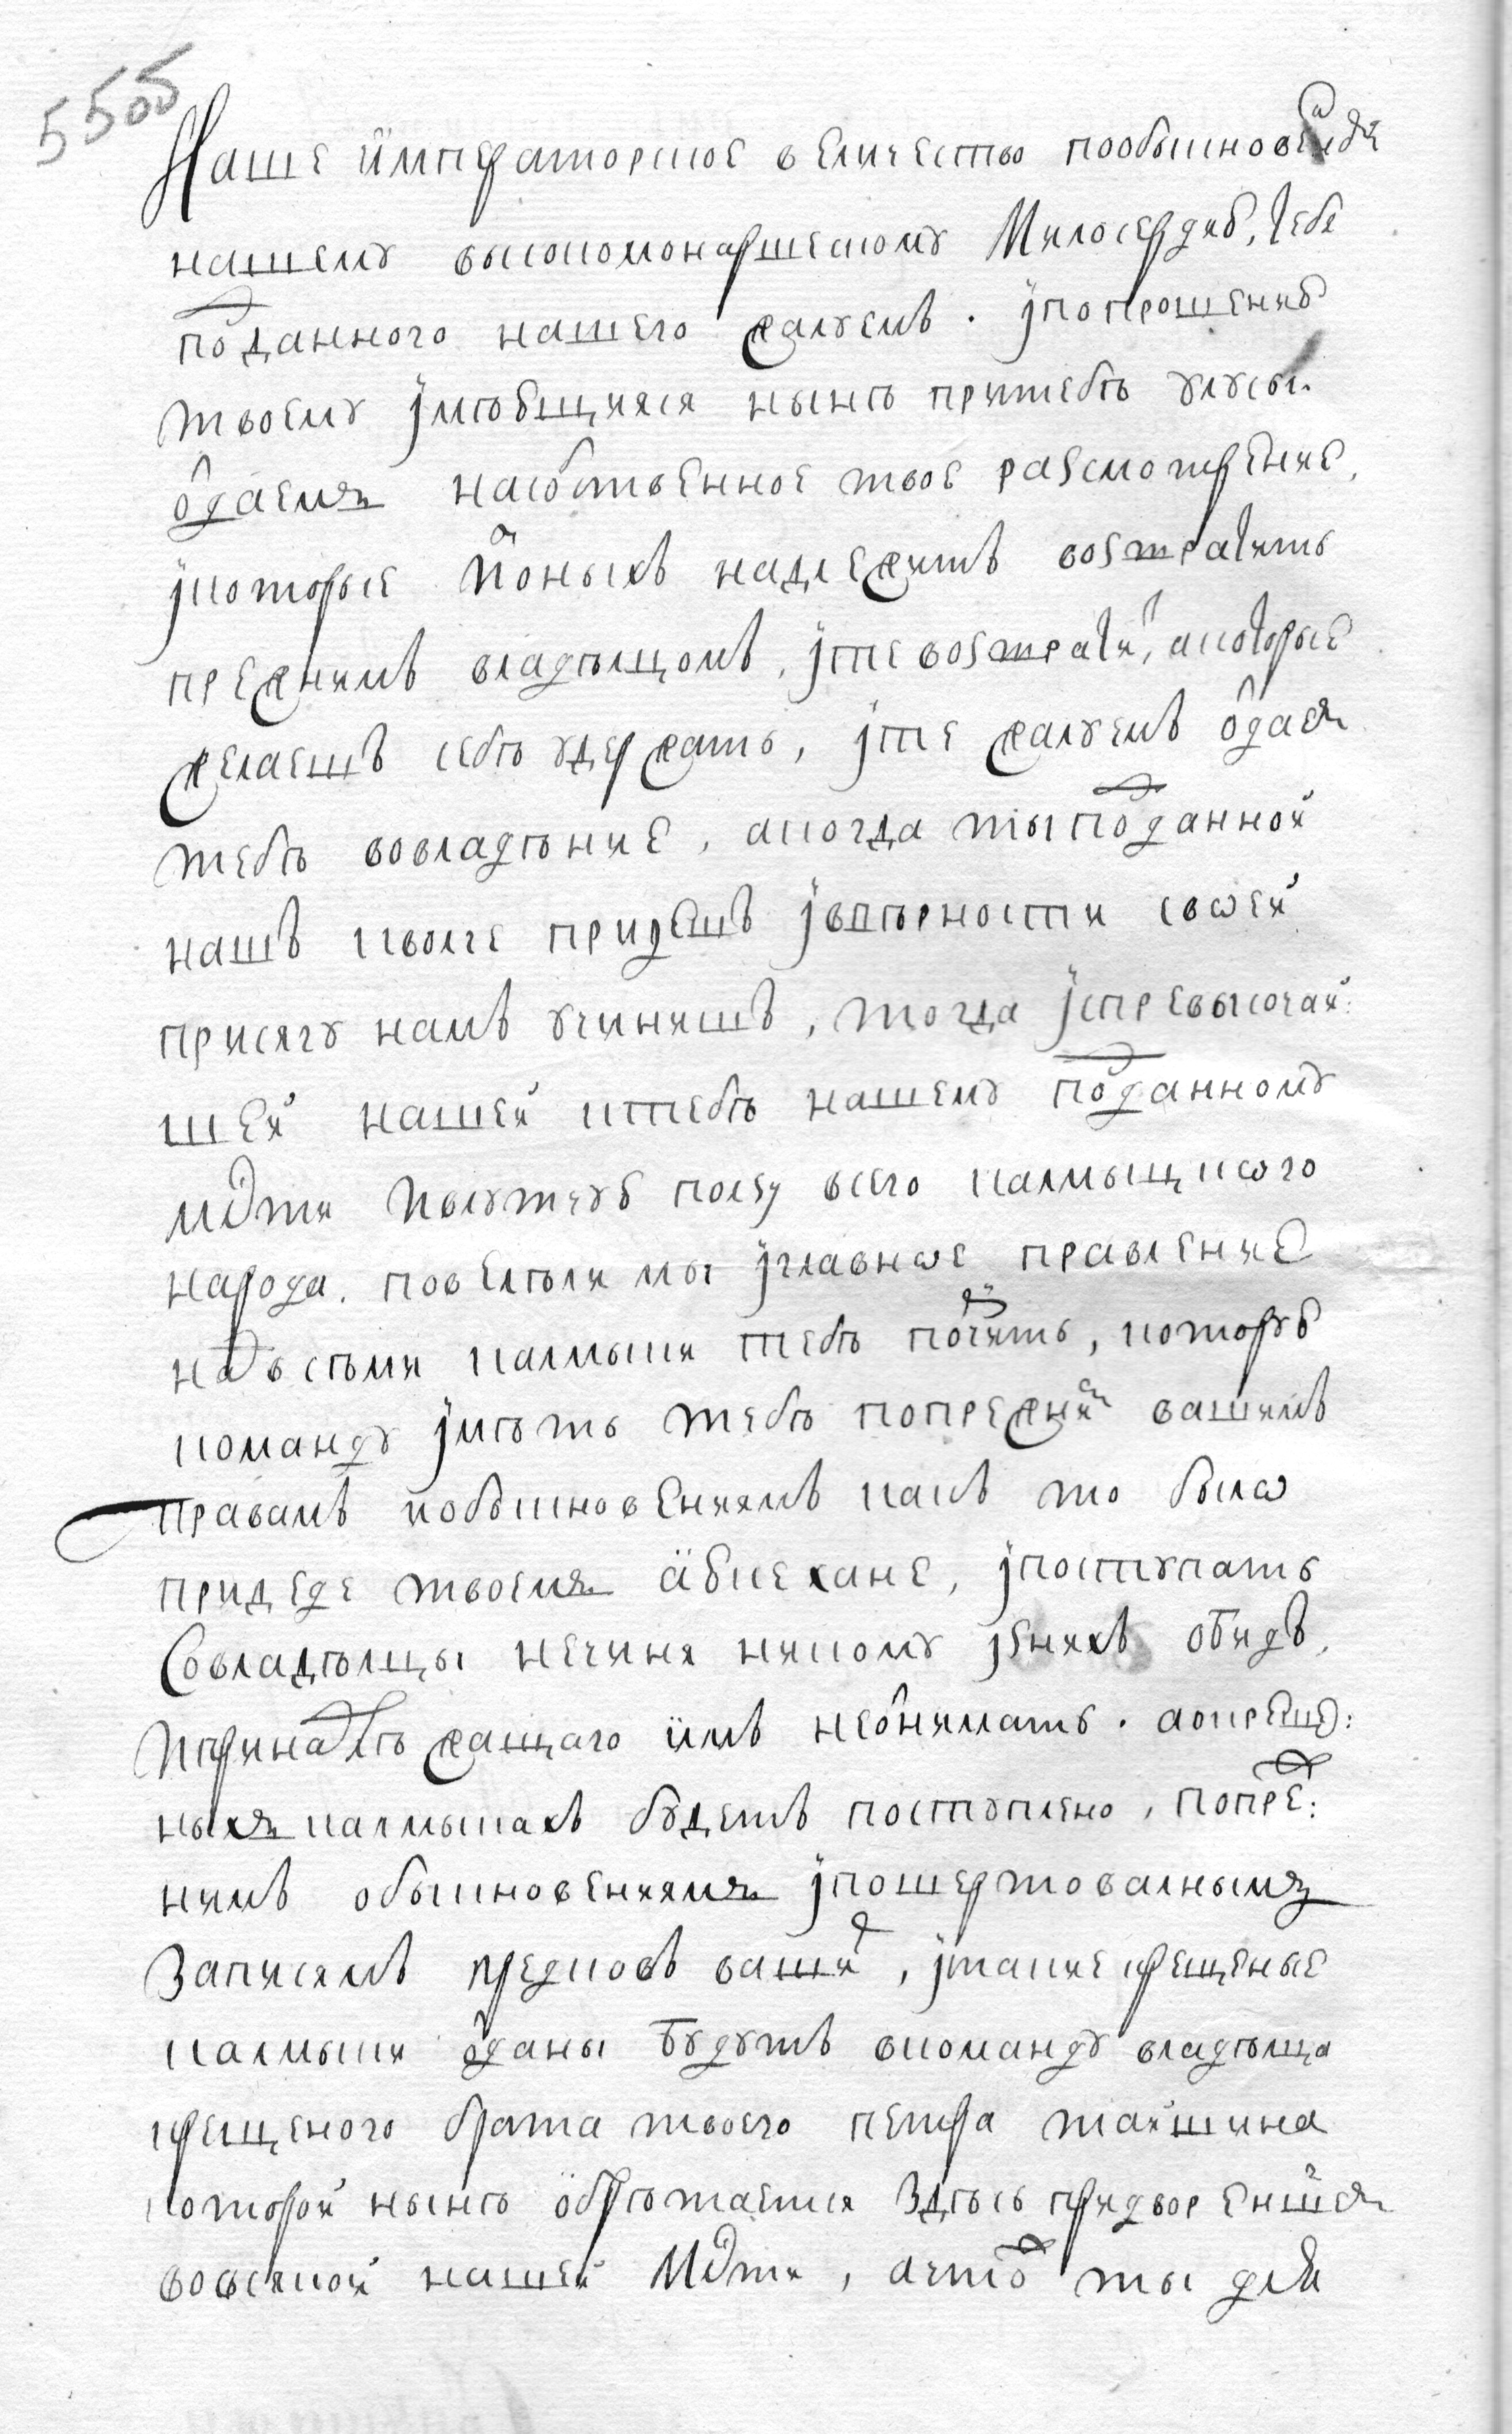 5505
Наше императорское величество пообыкновению
нашему высокомонаршескому Милосердию, тебя
подданного нашего жалуемъ. iпопрошению
твоему iмѣющияся нынѣ притебѣ улусы
одаемъ насобственное твое разсмотрение,
iкоторые изоныхъ надлежитъ возтратить
прежнимъ владѣлцомъ, iте возтрати, акоторые
желаешъ себѣ удержать, iте жалуемъ одая
тебѣ вовладѣние, акогда ты подданной
нашъ кволге придешъ iввѣрности своей
присягу намъ учинишъ, тогда iспревысочай:
шей нашей ктебѣ нашему подданному
млсти Искутчую ползу всего калмыцкого
народа. повелѣли мы iглавное правление
надвсѣми калмыки тебѣ порȣчить, которую
команду iмѣть тебѣ попрежним вашимъ
правамъ иобыкновениямъ какъ то было
придеде твоемъ аюкехане, iпоступать
Совладѣлцы нечиня никому iзнихъ обидъ,
Ипринадлѣжащаго имъ неотнимать. аокреще:
ныхъ калмыкахъ будетъ поступлено, попреж:
нимъ обыкновениямъ iпошертовалнымъ
Записямъ предковъ вашихъ, iтакие крещеные
калмыки отданы будутъ вкоманду владѣлца
крещеного брата твоего петра тайшина
которой нынѣ обрѣтается Здѣсь придворе нашемъ
вовсякой нашей Млсти, ачто ты для